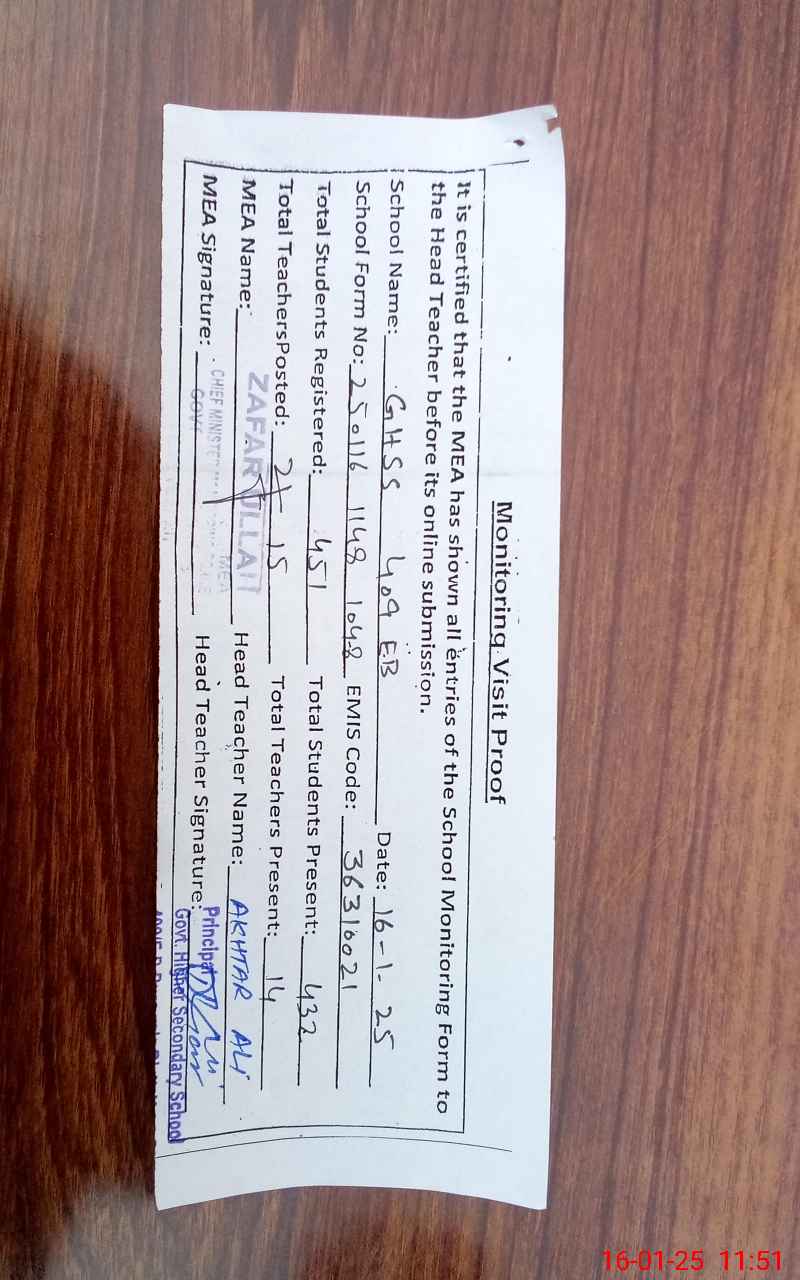 Monitoring Visit Proof
It is certified that the MEA has shown all entries of the School Monitoring Form to
the Head Teacher before its online submission.
School Name: GHSS 409 E.B Date: 16-1-25
School Form No: 250116 1148 1048 EMIS Code: 36310021
Total Students Registered: 451 Total Students Present: 432
Total TeachersPosted: 15 Total Teachers Present: 14
MEA Name: ZAFAR ULLAH Head Teacher Name: AKHTAR ALI
MEA Signature: CHIEF MINISTER MEA Head Teacher Signature:
GOVT
Principal
Govt. Higher Secondary School
16-01-25 11:51